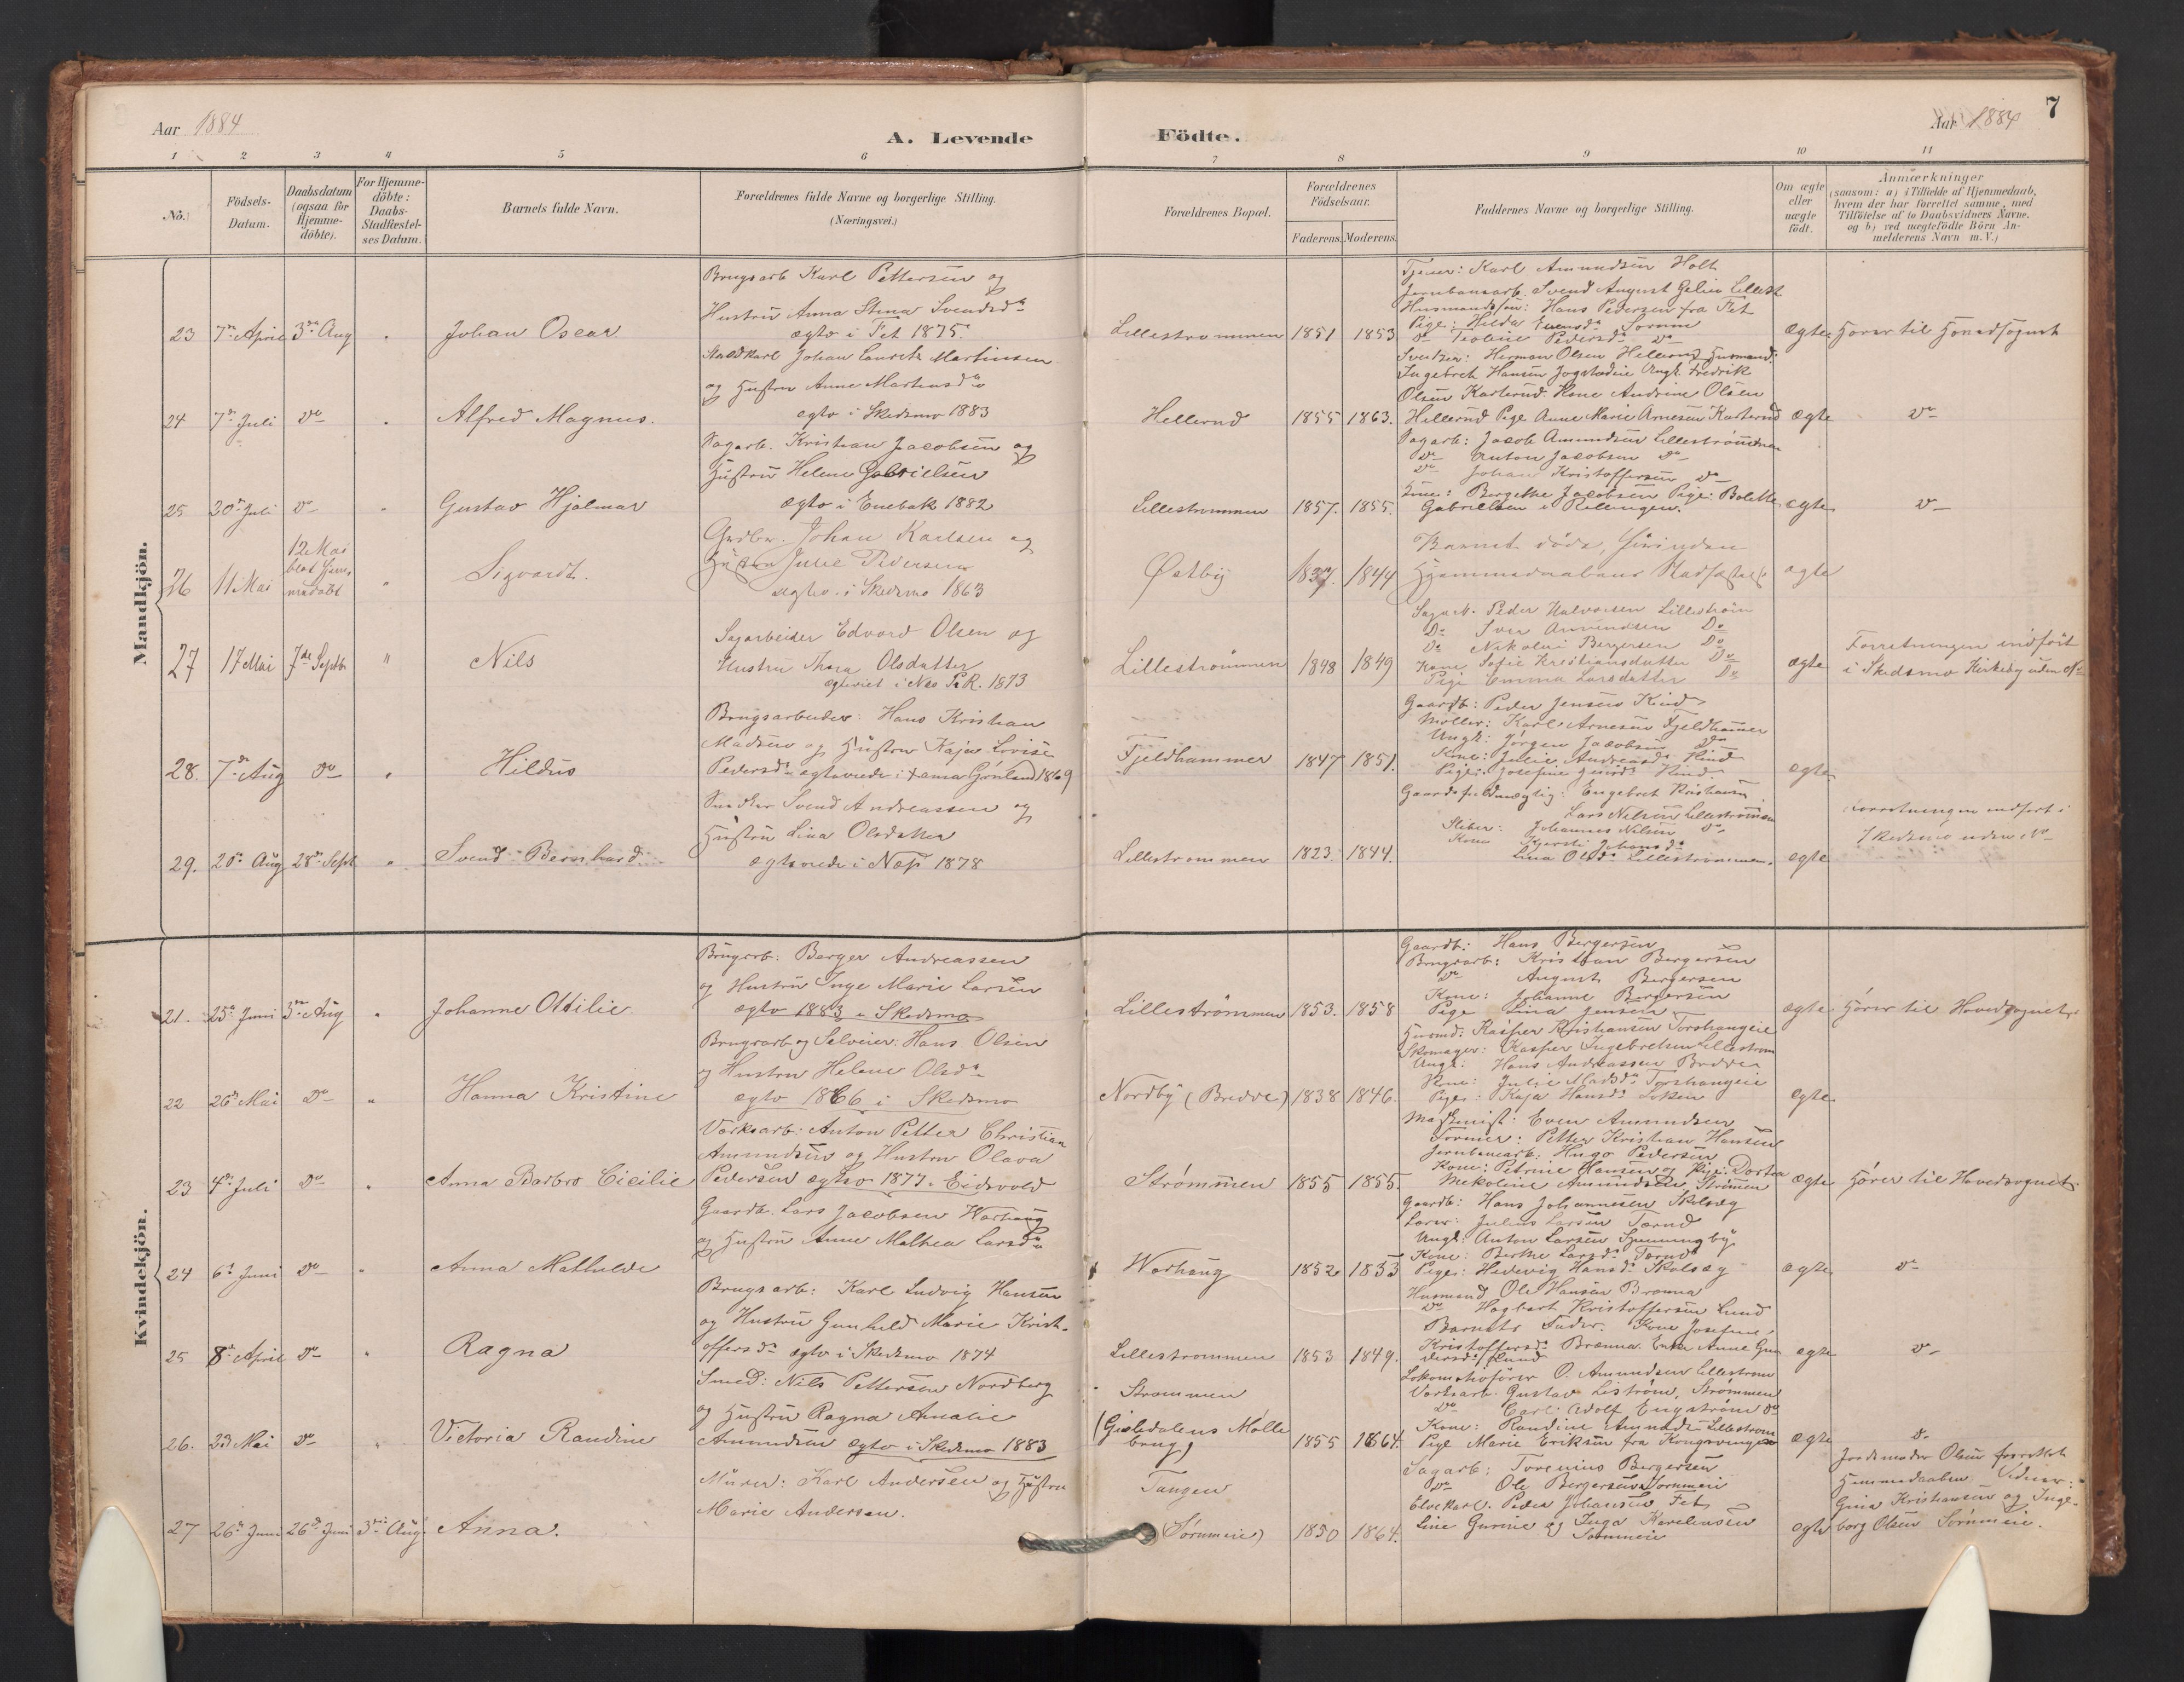 Aar 1884
A. Levende Födte.
Aar 1884
7
1 2 3 4 5 6 7 8 9 10 11
No. Födsels-Datum. Daabsdatum (ogsaa for Hjemme-döbte). For Hjemme-döbte: Daabs-Stadfæstel-ses Datum. Barnets fulde Navn. Forældrenes fulde Navne og borgerlige Stilling. (Næringsvei.) Forældrenes Bopæl. Forældrenes Födselsaar. Faderens. Moderens. Faddernes Navne og borgerlige Stilling. Om ægte eller uægte födt. Anmærkninger (saasom: a) i Tilfælde af Hjemmedaab, hvem der har forrettet samme, med Tilföielse af to Daabsvidners Navne, og b) ved uægtefödte Börn An-melderens Navn m. V.)
Mandkjön.
Brugsarb Karl Pettersen og
Hustru Anna Stina Svendsd.
ægtv i Fet 1875.
23 7de April 3die Aug Johan Oscar. Lillestrømmen 1851 1853 ægte Hører til Hovedsognet
Tjener: Karl Amundsen Holt
Jernbanearb. Svend August Lillest
Husmandssøn: Hans Pedersen fra Fet
Pige: Hilda Sørum
Do Pedersd. Do
Staldkarl Johan Lauritz Martinsen
og Hustru Anne Martinsd.
ægtv i Skedsmo 1883
24 7de Juli Do Alfred Magnus. Hellerud 1855 1863. ægte Do
Herman Olsen Hellerud Husmand:
Ingebret Hansen Ungk. Fredrik
Olsen Karlerud Kone Andrine Olsen
Hellerud Pige Anne Marie Arnesen Karterud
Sagarb. Kristian Jacobsen og
Hustru Helene Gabrielsen
ægtv i Enebak 1882
25 30de Juli Do Gustav Hjalmar Lillestrømmen 1857. 1855. ægte Do
Sagarb: Jacob Amundsen Lillestrømmen
Do Anton Jacobsen Do
Do Johan Kristoffersen Do
Kone: Bergethe Jacobsen Pige: Bolette
Gabrielsen i Relingen.
Grdbr. Johan Karlsen og
Hustru Julie Pedersen
ægtev. i Skedsmo 1863
26 11 Mai 12 Mai blot hjemmedøbt Sigvardt. Østby 1837. 1844 ægte
Barnet døde, førinden
Hjemmedaabens Stadfæstelse
Sagarbeider Edvard Olsen og
Hustru Thora Olsdatter
ægteviet i Næs P.R. 1873
27 17 Mai 7de Septbr " Nils Lillestrømmen 1848 1849 ægte
Sagarb. Peder Halvorsen Lillestrøm
Do Iver Amundsen Do
Do Nikolai Bergersen Do
Kone Sofie Kristiansdatter Do
Pige Emma Larsdatter Do
Forretningen indført
i Skedsmo Kirkebog uden No
Brugsarbeider: Hans Kristian
Madsen og Hustru Kaja Lovise
Pedersd. ægteviede i Grønland 1869
28. 7de Aug Do Hildus Fjeldhammer 1847 1851. ægte
Gaardb: Peder Jensen Kind
Møller: Karl Arnesen Fjeldhammer
Ungk: Jørgen Jacobsen Do
Kone: Julie Andreasd. Kind
Pige: Josefine Kind.
Engebret Kristiansen
Snedker Svend Andreassen og
Hustru Lina Olsdatter
ægteviede i Næs 1878
29. 20de Aug 28de Sept Svend Bernhard Lillestrømmen 1823. 1844. ægte
Lars Nilsen Lillestrømmen
Johannes Nilsen Do
Kone Kjersti Johansd.
Lina Olsd. Lillestrømmen.
Forretningen indført i
Skedsmo uden No
Kvindekjön.
Brugsarb: Berger Andreassen
og Hustru Inge Marie Larsen
ægtv 1883 i Skedsmo
21. 25de Juni 3die Aug Johanne Ottilie Lillestrømmen 1853. 1858 ægte Hører til Hovedsognet.
Gaardb: Hans Bergersen
Brugsarb: Kristian Bergersen
Do August Bergersen
Kone: Johanne Bergersen
Pige Lina Jensen
Brugsarb og Selveier: Hans Olsen
og Hustru Helene Olsd.
ægtv 1866 i Skedsmo
22 26de Mai Do Hanna Kristine Nordby (Bredve) 1838 1846. ægte
Husmd: Kasper Kristiansen Torshaugeie
Skomager: Kasper Ingebretsen Lillestrøm
Ungk: Hans Andreassen Bredve
Kone: Julie Madsd. Torshaugeie
Pige: Kaja Hansd.
Værksarb: Anton Petter Christian
Amundsen og Hustru Olava
Pedersen ægtv 1877 i Eidsvold
23 4de Juli Do Anna Barbro Cicilie Strømmen 1855 1855. ægte Hører til Hovedsognet.
Maskinist: Even Amundsen
Former: Petter Kristian Hansen
Jernbanearb: Hugo Pedersen
Kone: Petrine Hansen og Pige: Dortea
Nikoline Amundsen Strømmen
Gaardb. Lars Jacobsen Warhaug
og Hustru Anne Mathea Larsd.
24 6te Juni Do Anna Mathilde Warhaug 1852 1853 ægte Do
Gaardb: Hans Johannesen Skolsæg
Lærer: Julius Larsen Tærud
Ungk: Anton Larsen
Kone: Berthe Larsd. Tærud
Pige: Hedevig Hansd. Skolsæg
Brugsarb: Karl Ludvig Hansen
og Hustru Gunhild Marie Krist-
offersd. ægtv i Skedsmo 1874
25 8de April Do Ragna Lillestrømmen 1853 1849. ægte Do
Husmand Ole Hansen Brænna
Do Hagbart Kristoffersen Lund
Barnets Fader. Kone Josefine
Kristoffersd. Brænna. Enke Anne Gun
dersd. Lund
Smed: Nils Pettersen Nordberg
og Hustru Ragna Amalie
Amundsen ægtv i Skedsmo 1883
26. 23 Mai Do Victoria Randine Strømmen (Mølle brug) 1855 1864. ægte Do
Lokomotivfører O. Amundsen Lillestrøm
Værksarb. Gustav Liström, Strømmen
Do Carl Adolf Engström Do
Kone: Randine Amunds. Lillestrøm
Pige Marie Eriksen fra Kongsvinger
Murer: Karl Andersen og Hustru
Marie Andersen.
27 26de Juni 26de Juni 3die Aug. Anna. Tangen (Sørumeie) 1850 1864. ægte
Sagarb: Torenius Bergersen
Do Ole Bergersen Sørumeie
Elvekarl. Peder Johansen Fet
Line Gurine og Inga Kareliusen
Sørumeie
Jordemoder Olsen forrettet
Hjemmedaaben Vidner:
Gina Kristiansen og Inge-
borg Olsen Sørumeie.